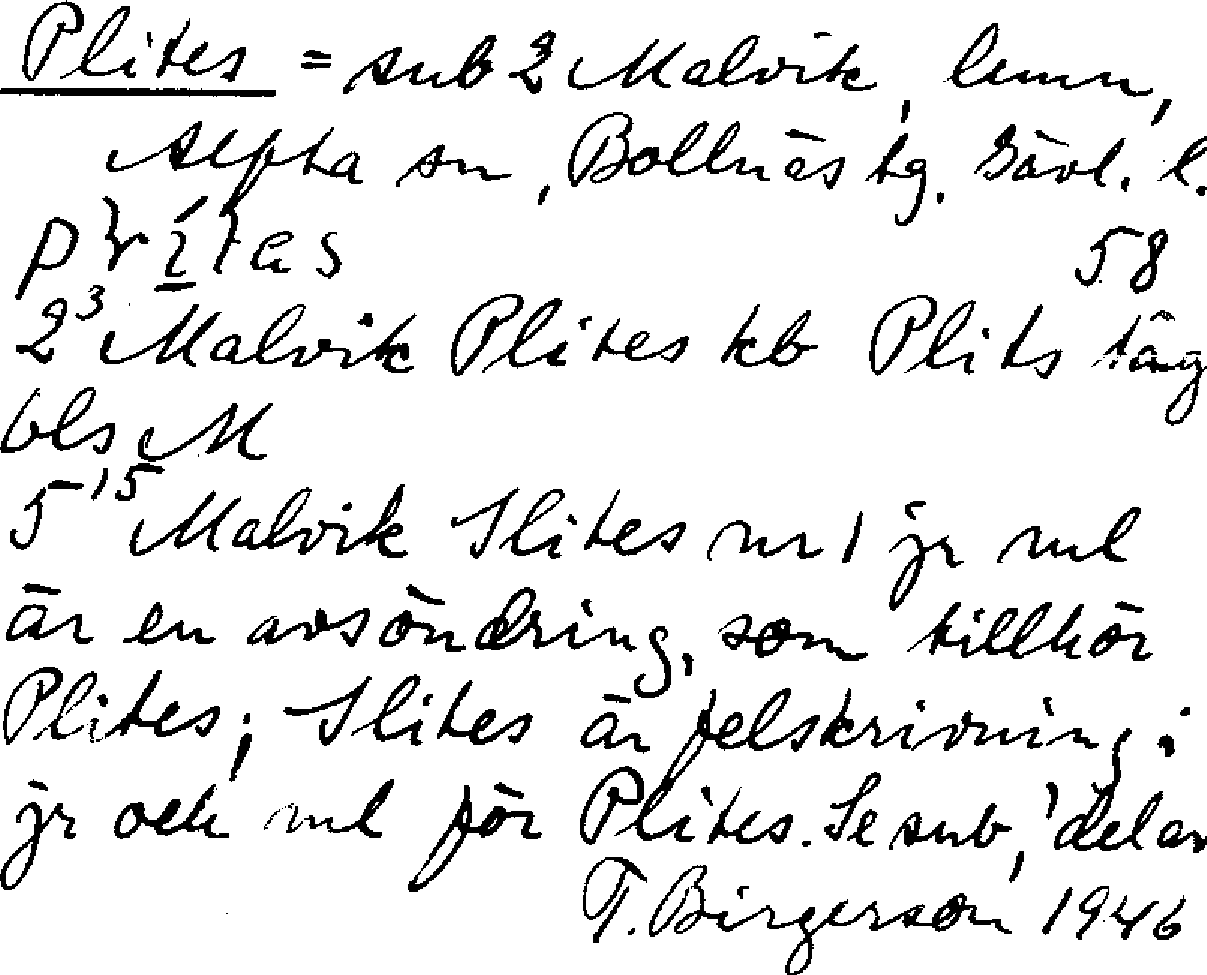 Plites = sub 2 Malvik, lemn,
Alfta sn, Bollnäs tg. Gävl. l.
58
2³ Malvik Plites kb Plits täg
bls M
5¹⁵ Malvik Slites nr 1 jr ml
är en avsöndring, som tillhör
Plites; Slites är felskrivning i
jr och ml för Plites. Se sub, 'delar
T. Birgerson 1946